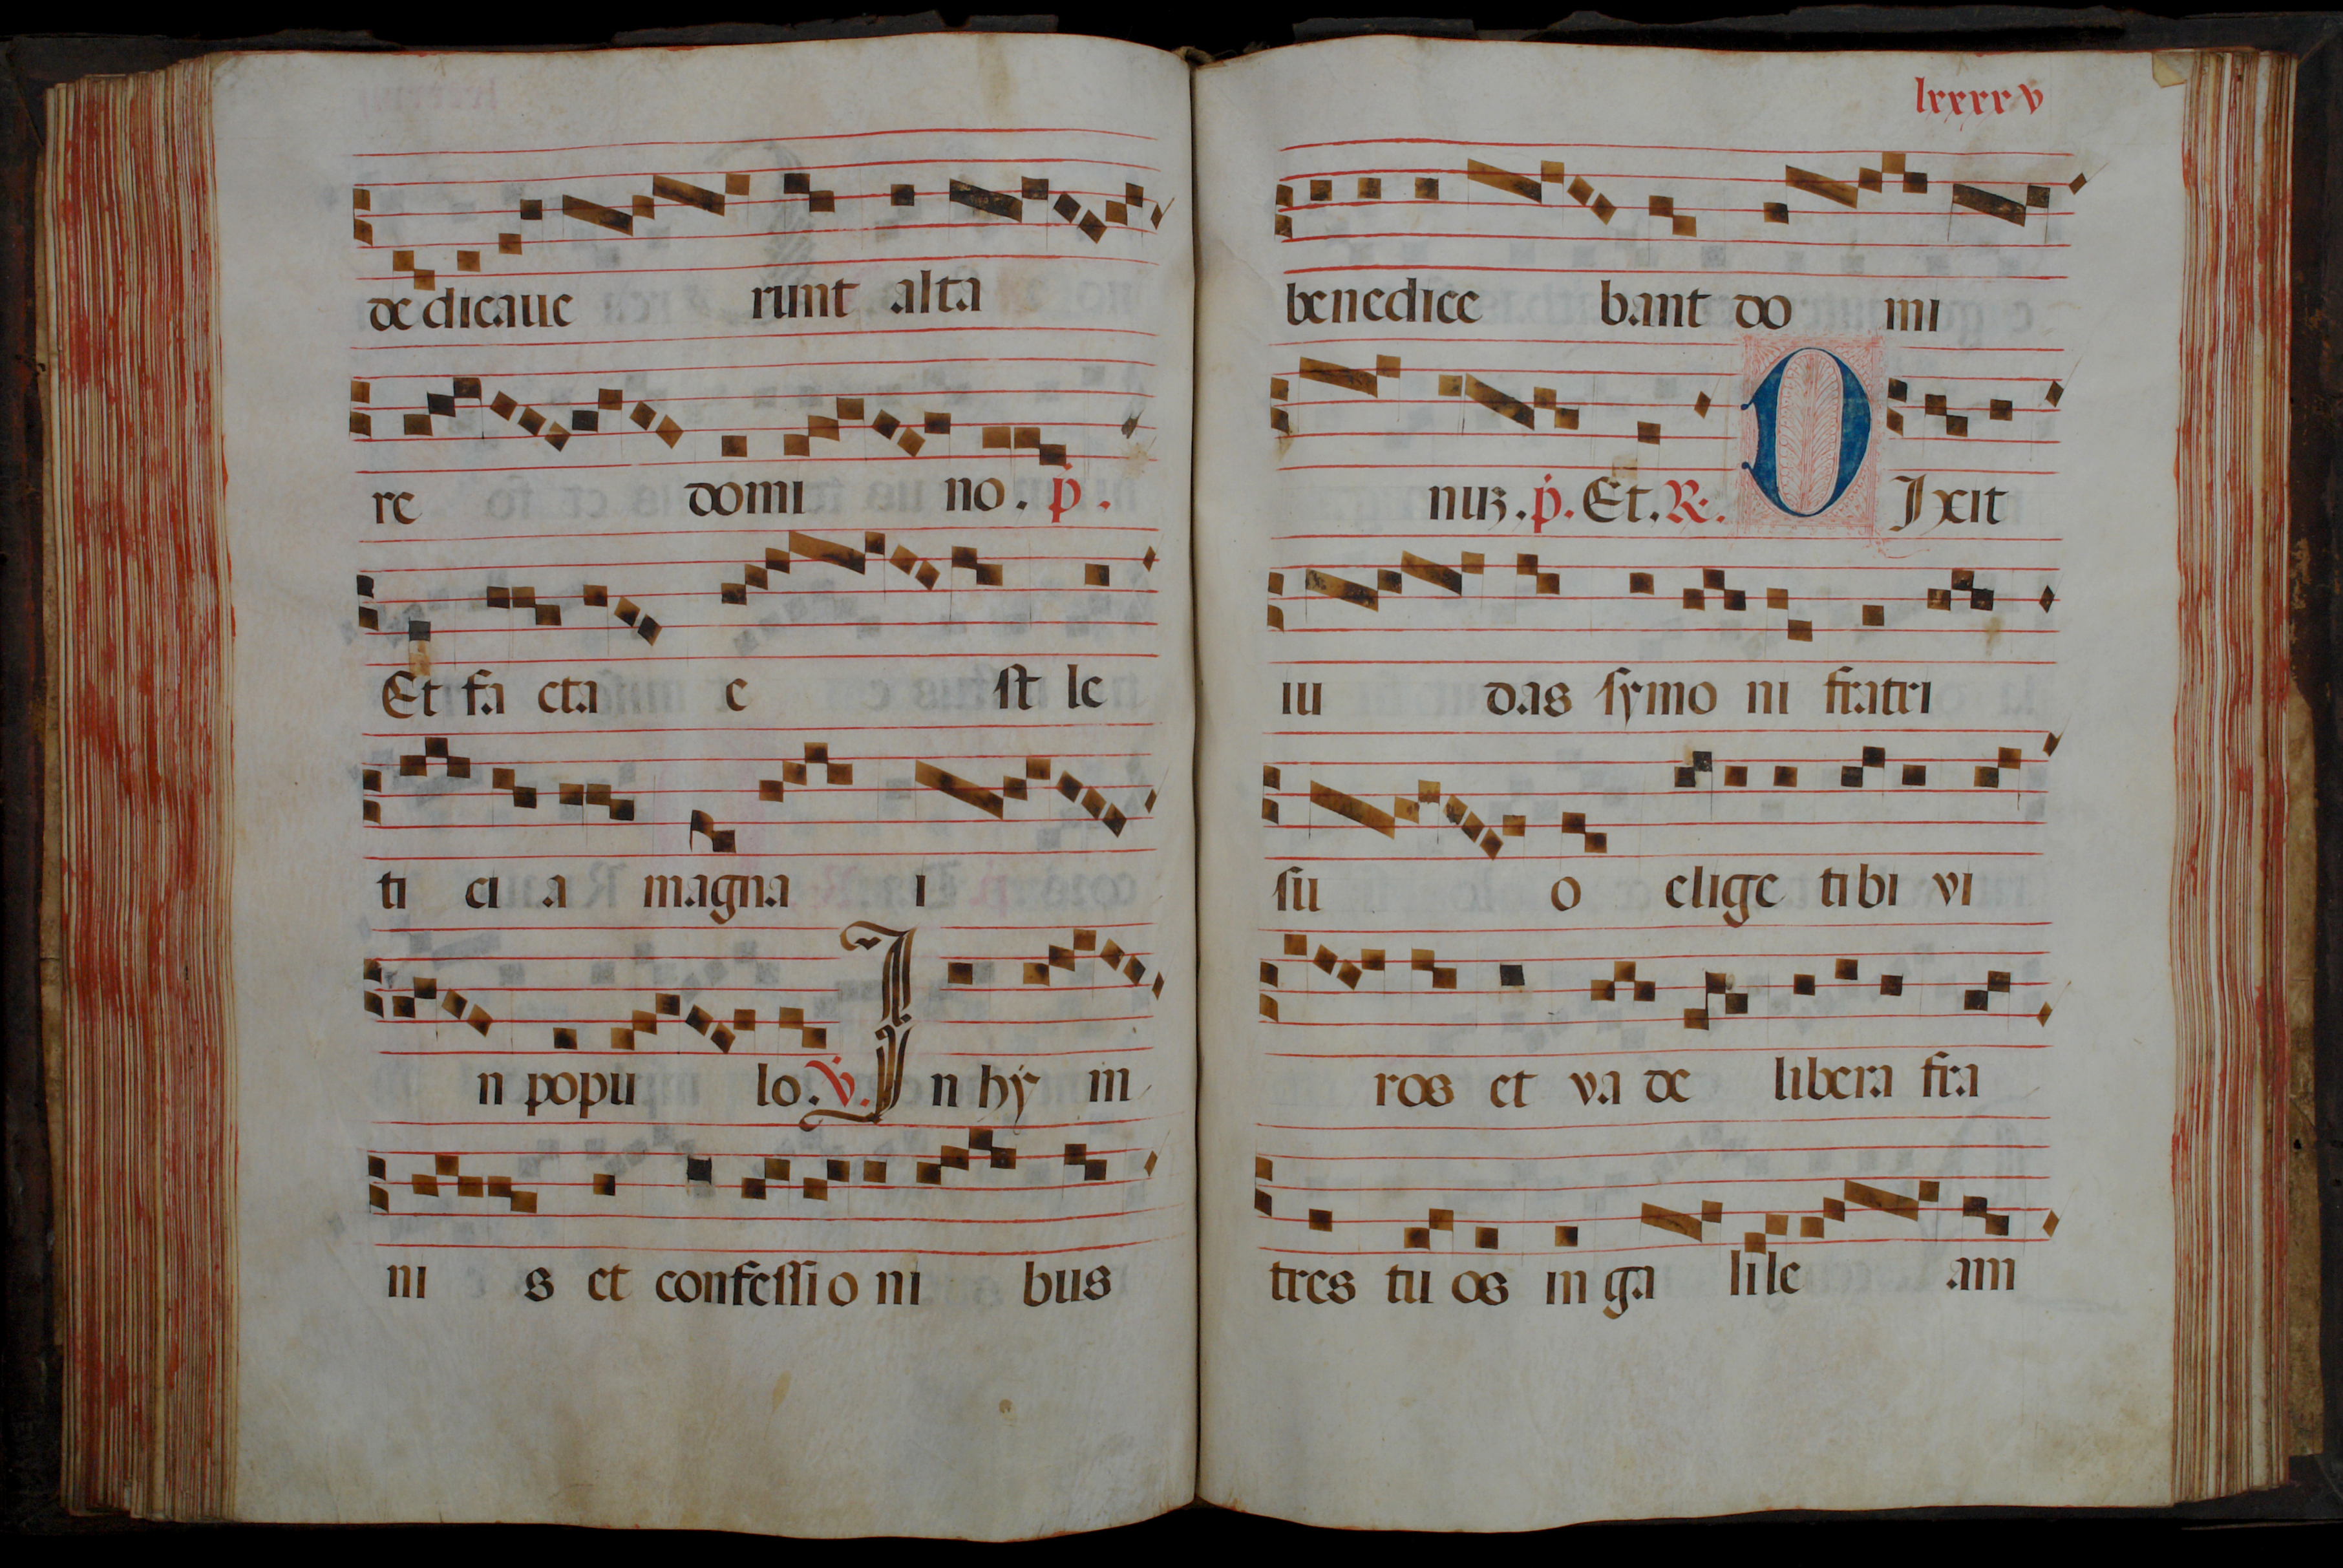 de dicaue runt alta
re domi no. p.
Et fa cta e st le
ti ci a magna i
n popu lo. V. I n hy m
ni s et confessi o ni bus
lxxxxv
benedice bant do mi
nuz. p. Et. R. D Ixit
iu das symo ni fratri
su o elige tibi vi
ros et va de libera fra
tres tu os in ga lile am